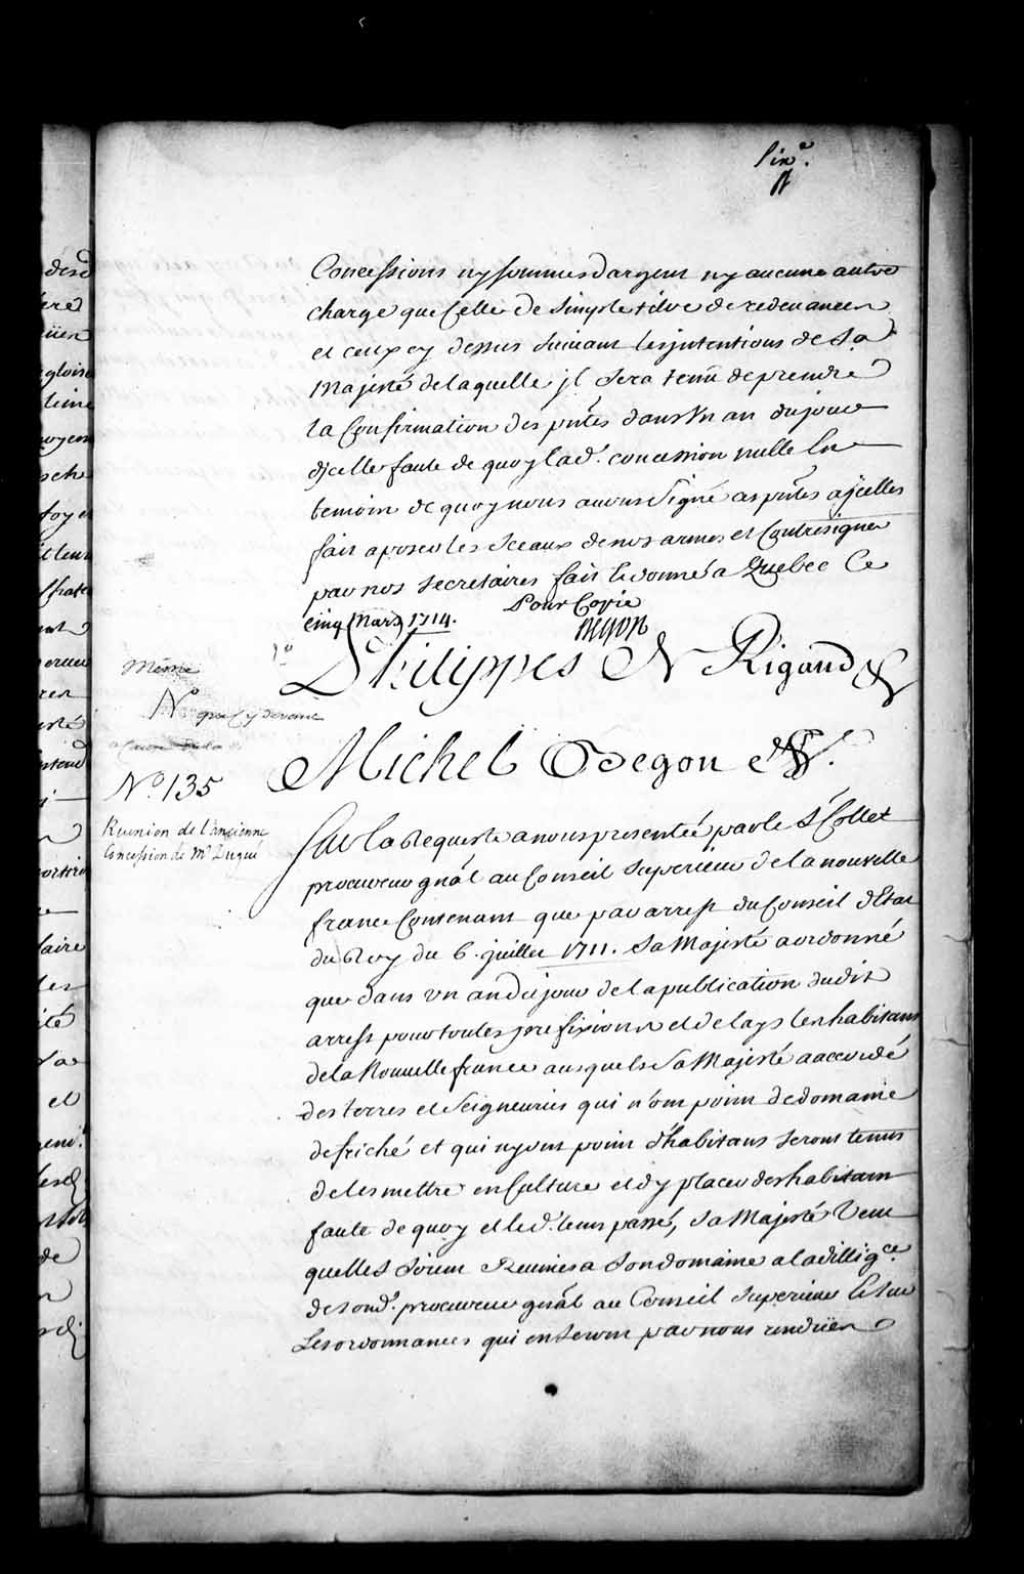 Concessions ny sommes d'argent ny aucune autre
charge que celle de simple titre de redevances
et ceux cy dessus suivant les jntentions de Sa
Majesté de laquelle jl sera tenu de prendre
la Confirmation des pntes dans Vn an du jour
d'jcelle faute de quoy lad. concession nulle En
temoin de quoy nous avons signé as pntes a jcelles
fait aposer les sceaux de nos armes et Contresigner
par nos secretaires fait et donné a Quebec Ce
cinq Mars 1714.
Pour Copie
Begon
Philippes De Rigaud &
Même
No que cy devant
Michel Begon &.
No. 135
Reunion de l'ancienne
Concession de Mr Dugué
Sur la Requeste a nous presentée par le Sr Collet
procureur gnal au Conseil Superieur de la nouvelle
france Contenant que par arrest du Conseil d'Etat
du Roy du 6. juillet 1711. Sa Majesté a ordonné
que dans vn an du jour de la publication dudit
arrest pour toutes prefixions et delays les habitans
de la Nouvelle france ausquels Sa Majesté a accordé
des terres et Seigneuries qui n'ont point de domaine
defriché et qui n'y ont point d'habitans seront tenus
de les mettre en Culture et d'y placer des habitans
faute de quoy et led. tems passé, Sa Majesté Veut
quelles soient Reunies a son domaine a la dilligce.
de sond. procureur gnal au Conseil Superieur et sur
les ordonnances qui en seront par nous rendües